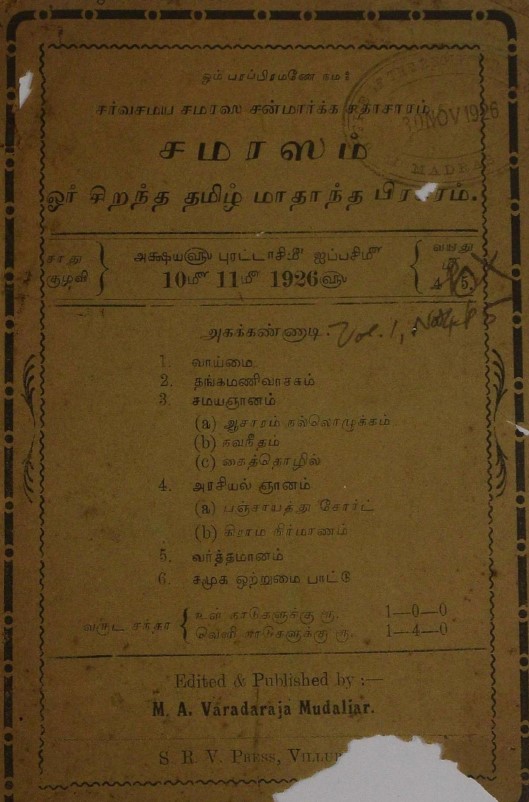 ஓம் பரப்பிரமணே நம:
சர்வசமய சமரஸ சன்மார்க்க சதாசாரம்
30 NOV 1926
MADRAS
சமரஸம்
ஓர் சிறந்த தமிழ் மாதாந்த பிரசுரம்.
சாது குழவி
அக்ஷய௵ புரட்டாசி௴ ஐப்பசி௴
10௴ 11௴ 1926௵
வயது
4 5
அகக்கண்ணாடி.
Vol. 1, No. 4 & 5
1. வாய்மை
2. தங்கமணிவாசகம்
3. சமயஞானம்
(a) ஆசாரம் நல்லொழுக்கம்
(b) நவநீதம்
(c) கைத்தொழில்
4. அரசியல் ஞானம்
(a) பஞ்சாயத்து கோர்ட்
(b) கிராம நிர்மாணம்
5. வர்த்தமானம்
6. சமுக ஒற்றுமை பாட்டு
வருட சந்தா
உள் நாடுகளுக்கு ரூ. 1—0—0
வெளி நாடுகளுக்கு ரூ. 1—4—0
Edited & Published by :—
M. A. Varadaraja Mudaliar.
S. R. V. Press,